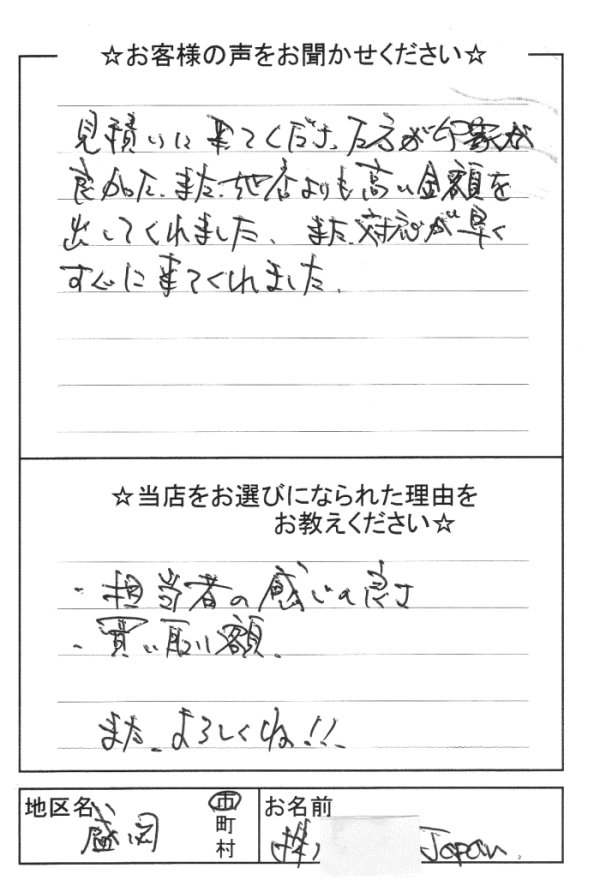 ☆お客様の声をお聞かせください☆
見積りに来てくださった方が印象が
良かった、また、他店よりも高い金額を
出してくれました、また、対応が早く
すぐに来てくれました、
☆当店をお選びになられた理由を
お教えください☆
・担当者の感じの良さ
・買い取り額、
また、よろしくね!!、
地区名 盛岡 市 町 村
お名前 Japan